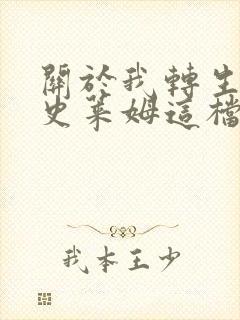 關於我轉生
史萊姆這檔
我本王少